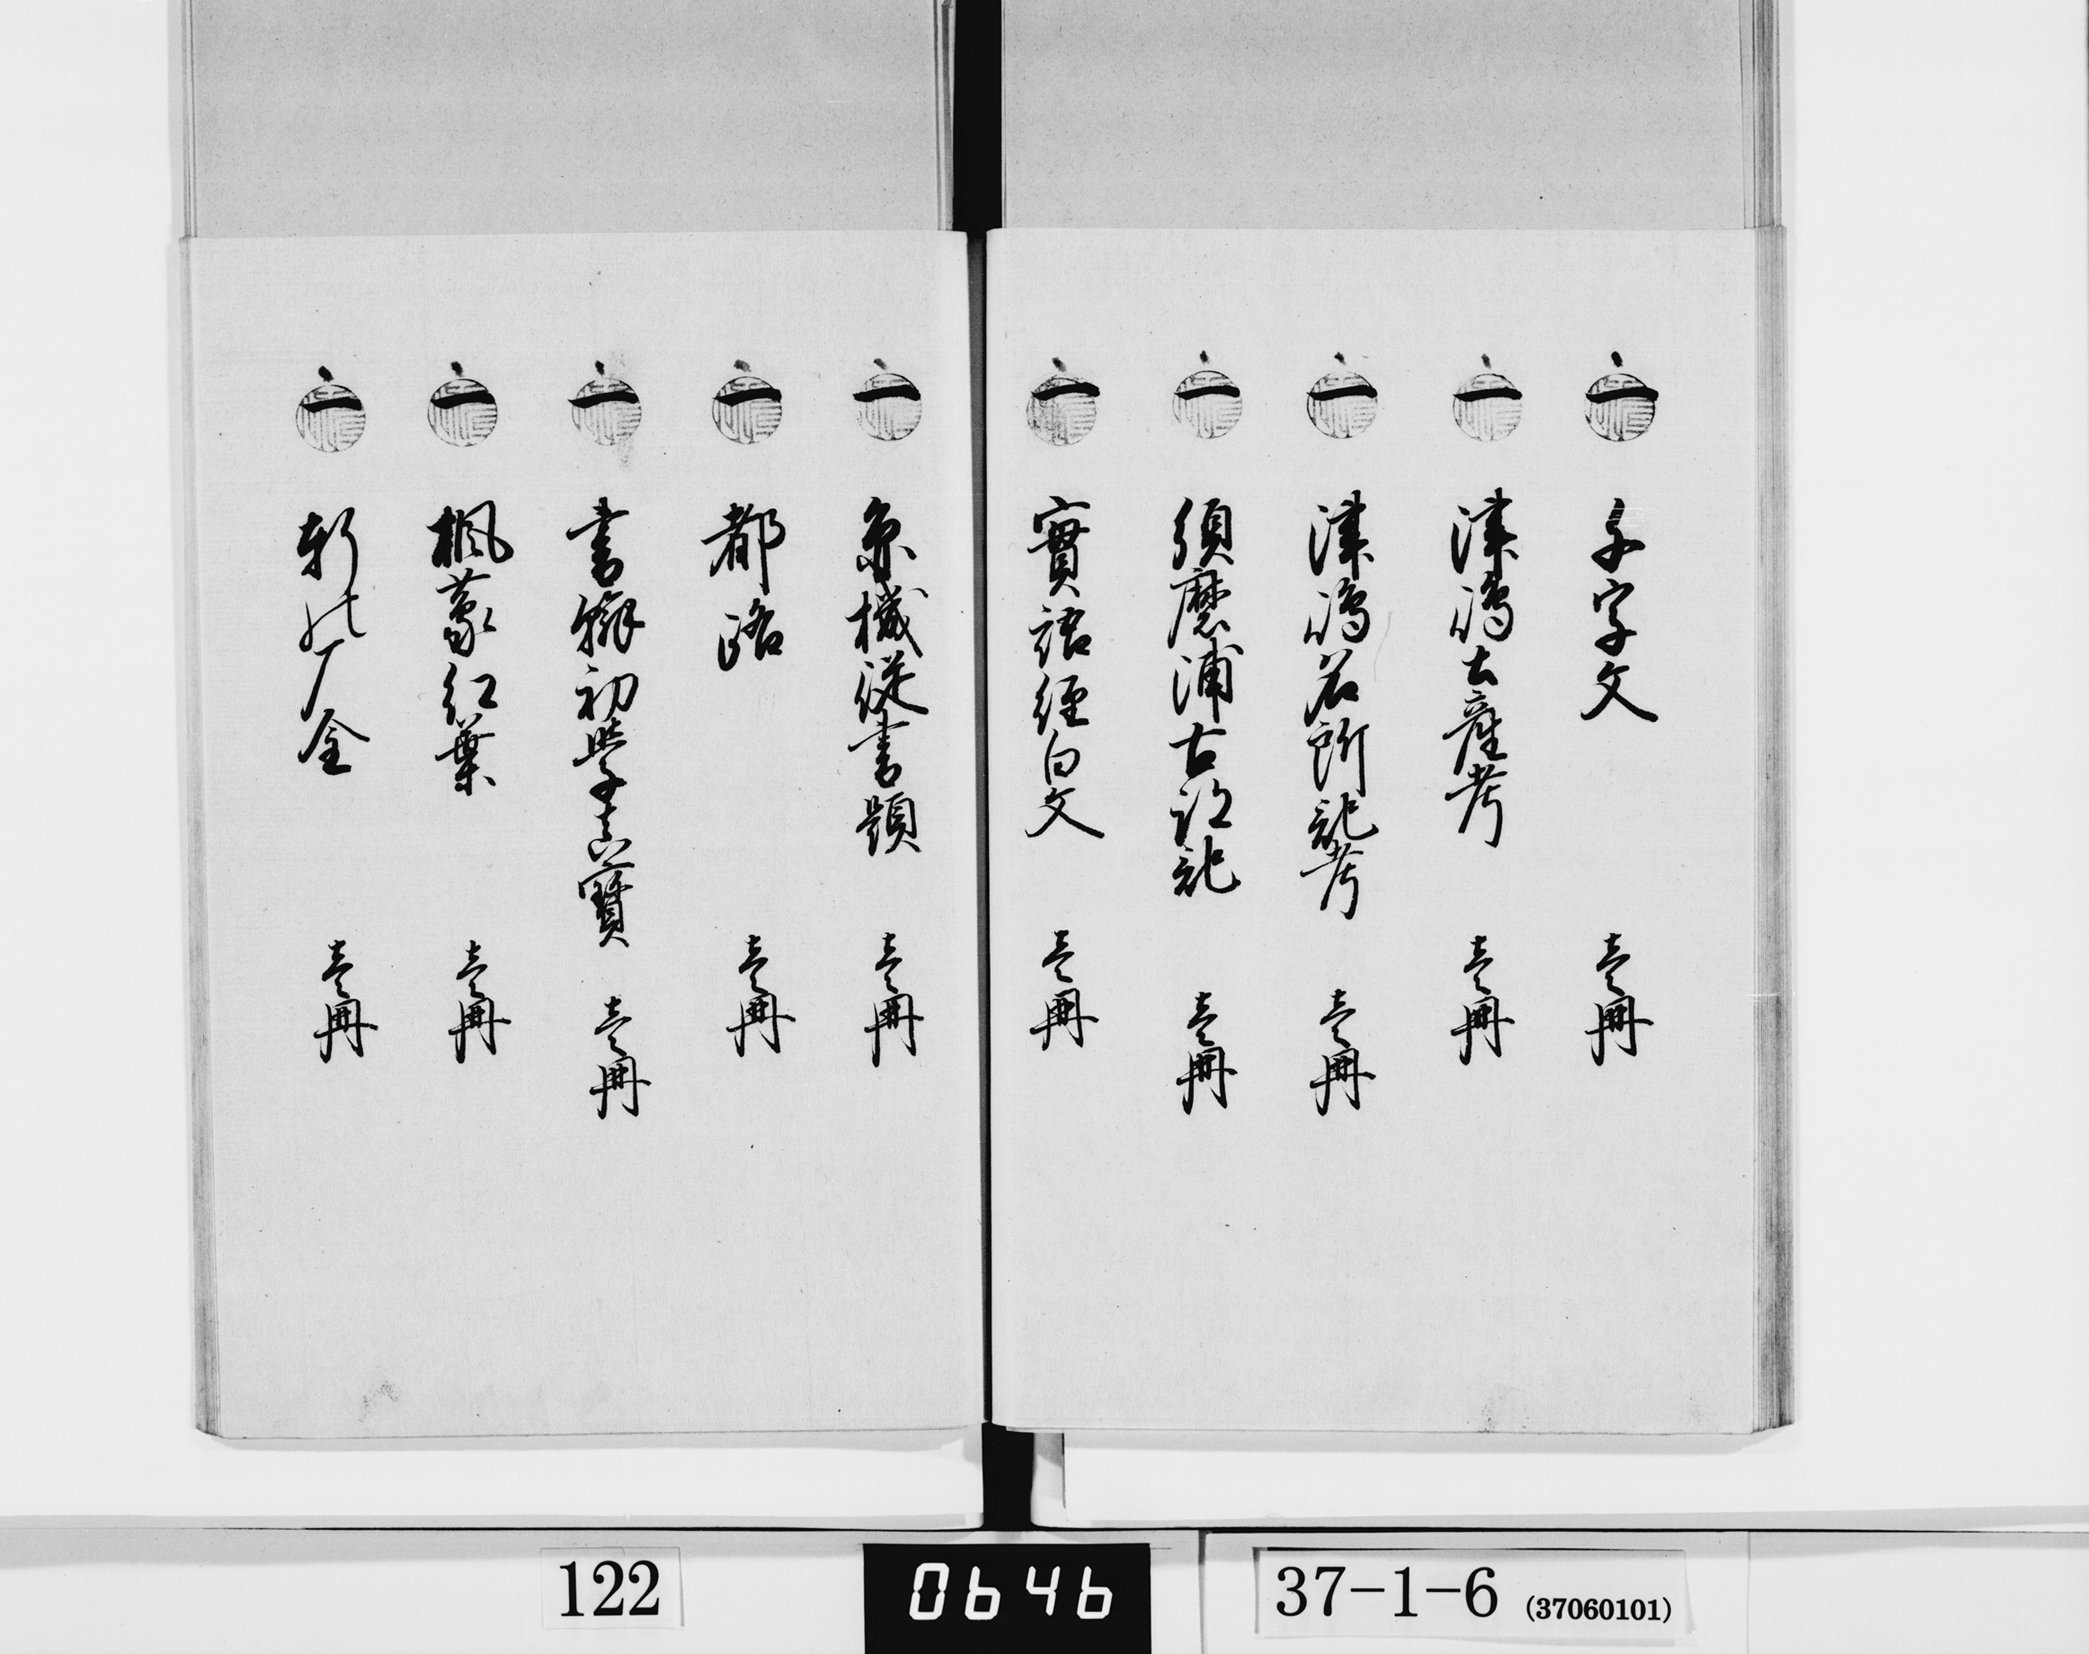 一 千字文 壱冊
一 津嶋土産考 壱冊
一 津嶋名所記考 壱冊
一 須磨浦古記 壱冊
一 實語経白文 壱冊
一 機従書題 壱冊
一 都路 壱冊
一 書翰初学寶 壱冊
一 楓蒙紅葉 壱冊
一 全 壱冊
122
0646
37-1-6 (37060101)